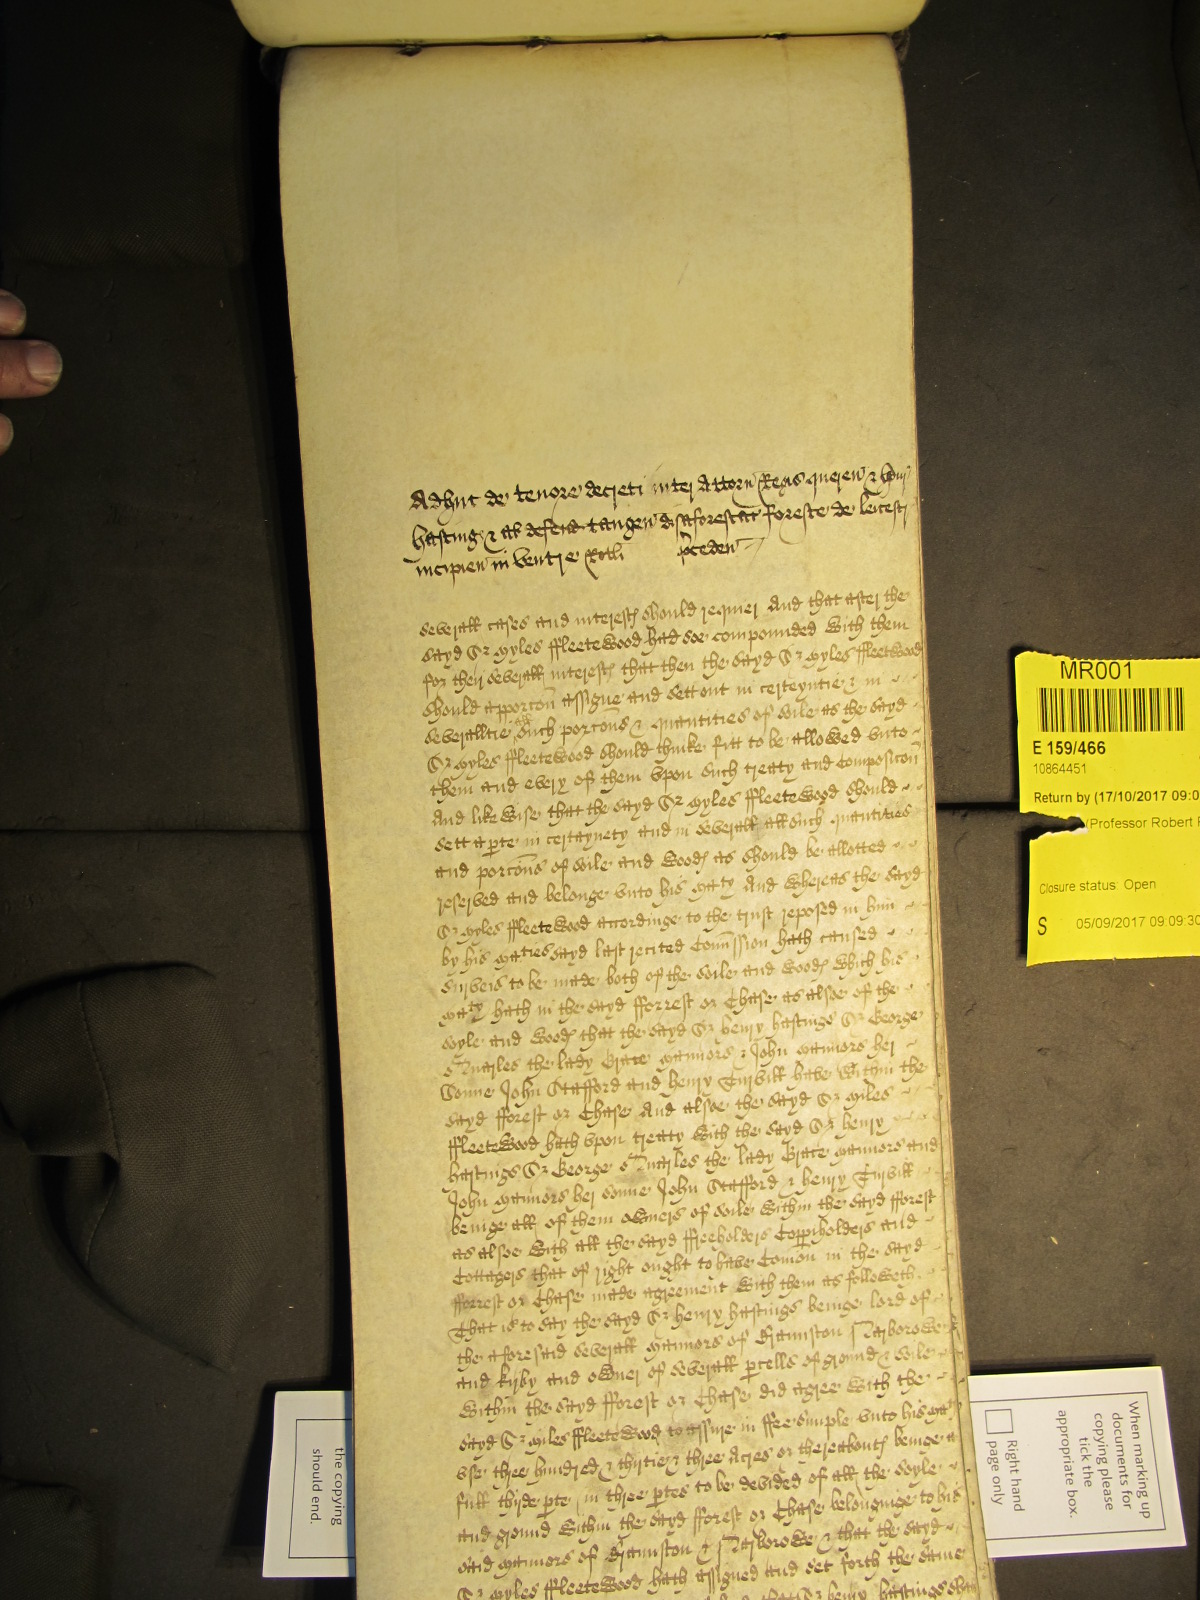 Adhuc de tenore decreti inter Attorn Regis queren & Henr
Hasting & al defend tangen disaforestac foreste de Leicestr
incipien in ventre Rotli preceden
severall cases and interests should requier And that after the
sayd Sr Myles ffleetewood had soe compounded with them
for their severall interests that then the sayd Sr Myles ffleetwood
should apporcon assigne and sett out in certeyntie & in
severaltie all such porcons & quantities of soile as the sayd
Sr Myles ffleetewood should thinke fitt to be allowed unto
them and every of them upon such treaty and composicon
And likewise that the sayd Sr Myles ffleetewood should
sett a pte in certaynety and in severall all such quantities
and porcons of soile and woods as should be allotted
reserved and belonge unto his Maty And whereas the sayd
Sr Myles ffleetewood accordinge to the trust reposed in him
by his Maties sayd last recited Comission hath caused
surveis to be made both of the soile and woods which his
Maty hath in the sayd fforrest or Chase as alsoe of the
soyle and woods that the sayd Sr Henry Hastings Sr George
the Lady Grace Mannors & John Mannors her
Sonne John Stafford and Henry Turvill have within the
sayd fforest or Chase And alsoe the sayd Sr Miles
ffleetewood hath upon treaty with the sayd Sr Henry
Hastings Sr George the Lady Grace Mannors and
John Mannors her sonne John Stafford & Henry Turvill
beinge all of them owners of soile within the sayd fforest
as alsoe with all the sayd ffreeholders Coppiholders and
Cottagers that of right ought to have Comon in the sayd
fforrest or Chase made agreement with them as followeth.
That is to say the sayd Sr Henry Hastings beinge lord of
the aforesaid severall Mannors of Braunston Narborowe
and Kirby and owner of severall pcells of ground & soile
within the sayd fforest or Chase did agree with the
sayd Sr Miles ffleetewood to assure in ffee simple unto his Maty
use three hundred & thirtie & three Acres or thereabouts beinge a
full third pte in three ptes to be devided of all the soyle
and ground within the sayd fforest or Chase belonginge to his
said Mannors of Braunston & Narborowe & that the sayd
Sr Myles ffleetewood hath assigned and set forth the same
Sr Henry Hastings
MR001
E 159/466
10864451
Return by (17/10/2017 09:0
(Professor Robert
Closure status: Open
S 05/09/2017 09:09:30
the copying
should end.
When marking up
documents for
copying please
tick the
appropriate box.
Right hand
page only